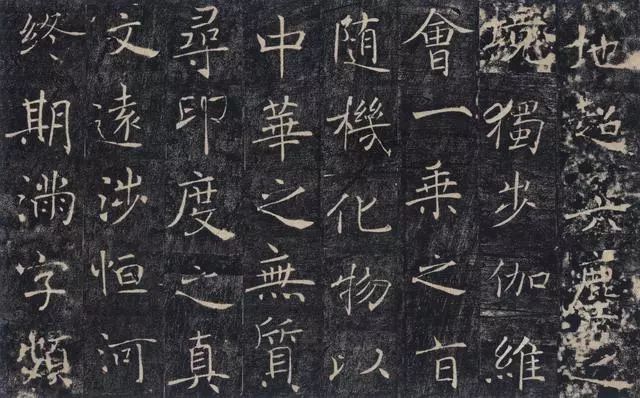 地超六塵之
境獨步伽維
會一乗之旨
随機化物以
中華之無質
尋印度之真
文遠涉恒河
終期滿字頻